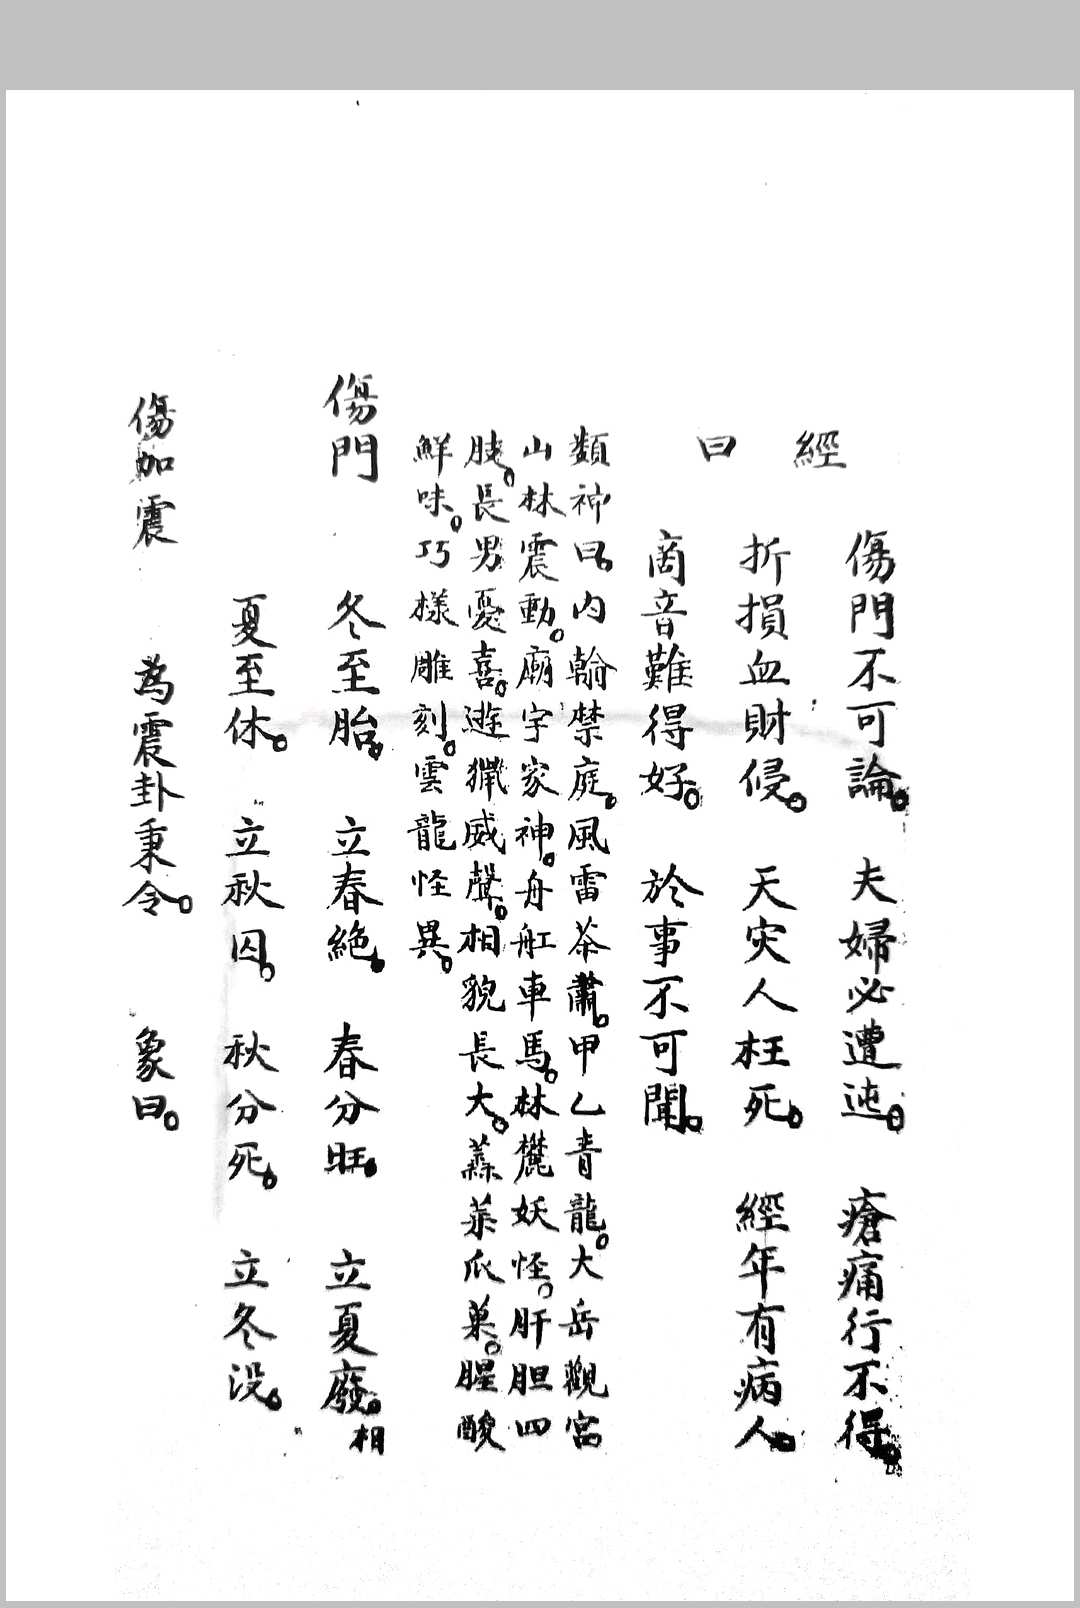 經
曰
傷門不可論。夫婦必遭迍。瘡痛行不得。
折損血財侵。天灾人枉死。經年有病人。
商音難得好。於事不可聞。
類神曰。內翰禁庭。風雷茶肅。甲乙青龍。大岳觀宮
山林震動。廟宇家神。舟舡車馬。林麓妖怪。肝胆四
肢。長男憂喜。遊獵威聲。相貌長大。蔬菜瓜菓。腥酸
鮮味。巧樣雕刻。雲龍怪異。
傷門 冬至胎。立春絕。春分旺。立夏廢。相
夏至休。立秋囚。秋分死。立冬沒。
傷加震 為震卦秉令。象曰。